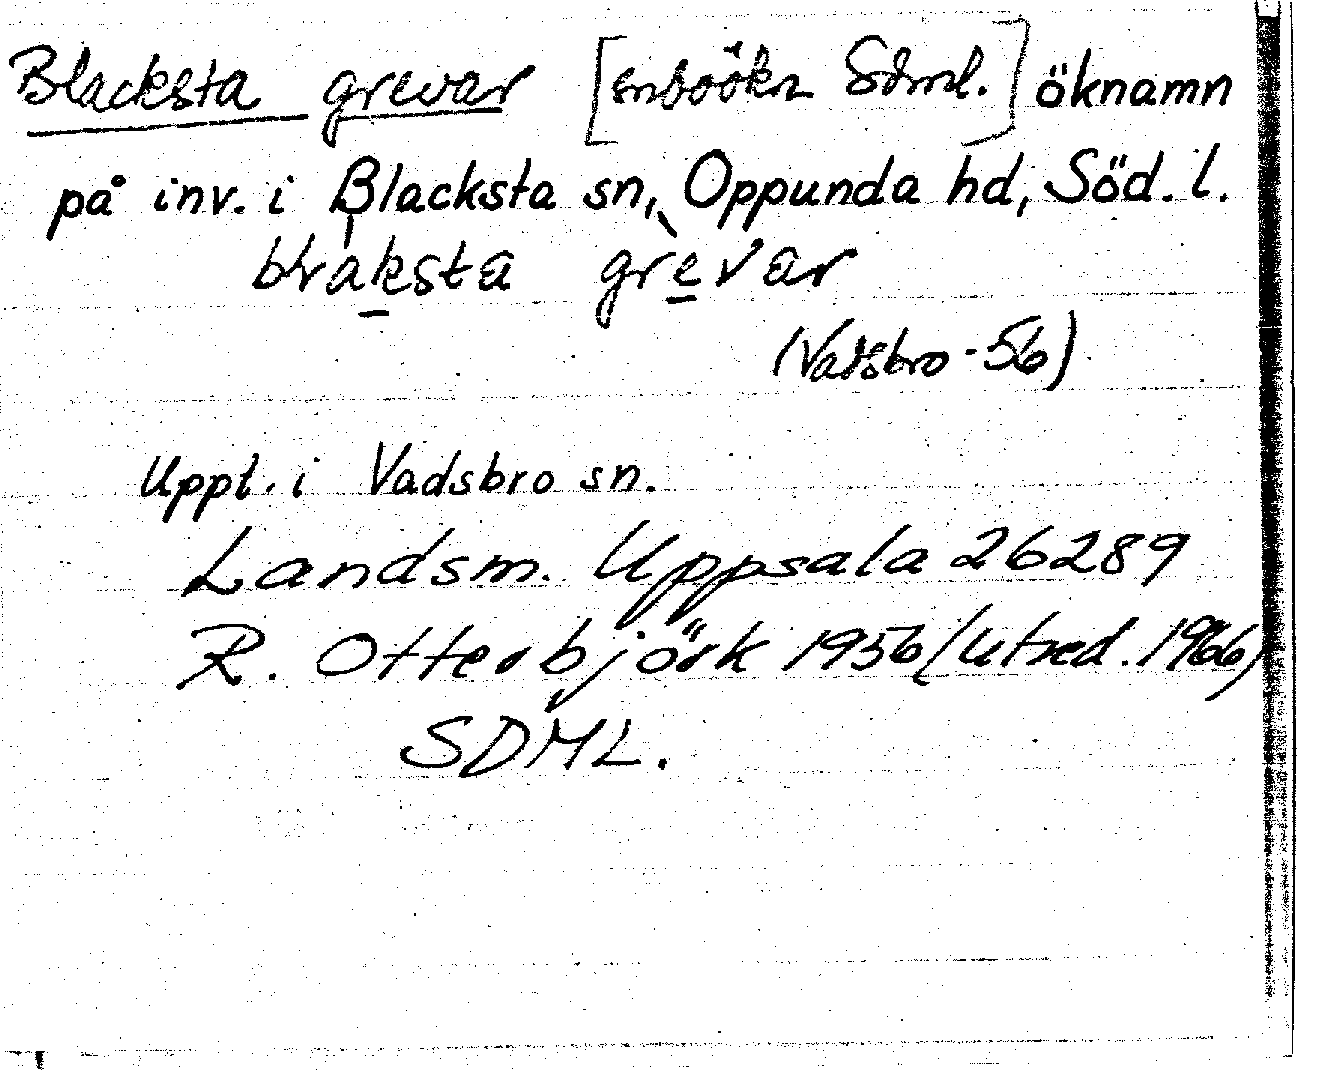 Blacksta grevar [snboökn Sdml.] öknamn
på inv. i Blacksta sn, Oppunda hd, Söd. l.
grevar
(Vadsbro -56)
Uppt. i Vadsbro sn.
Landsm. Uppsala 26289
R. Otterbjörk 1956 (utred. 1966)
SDML.